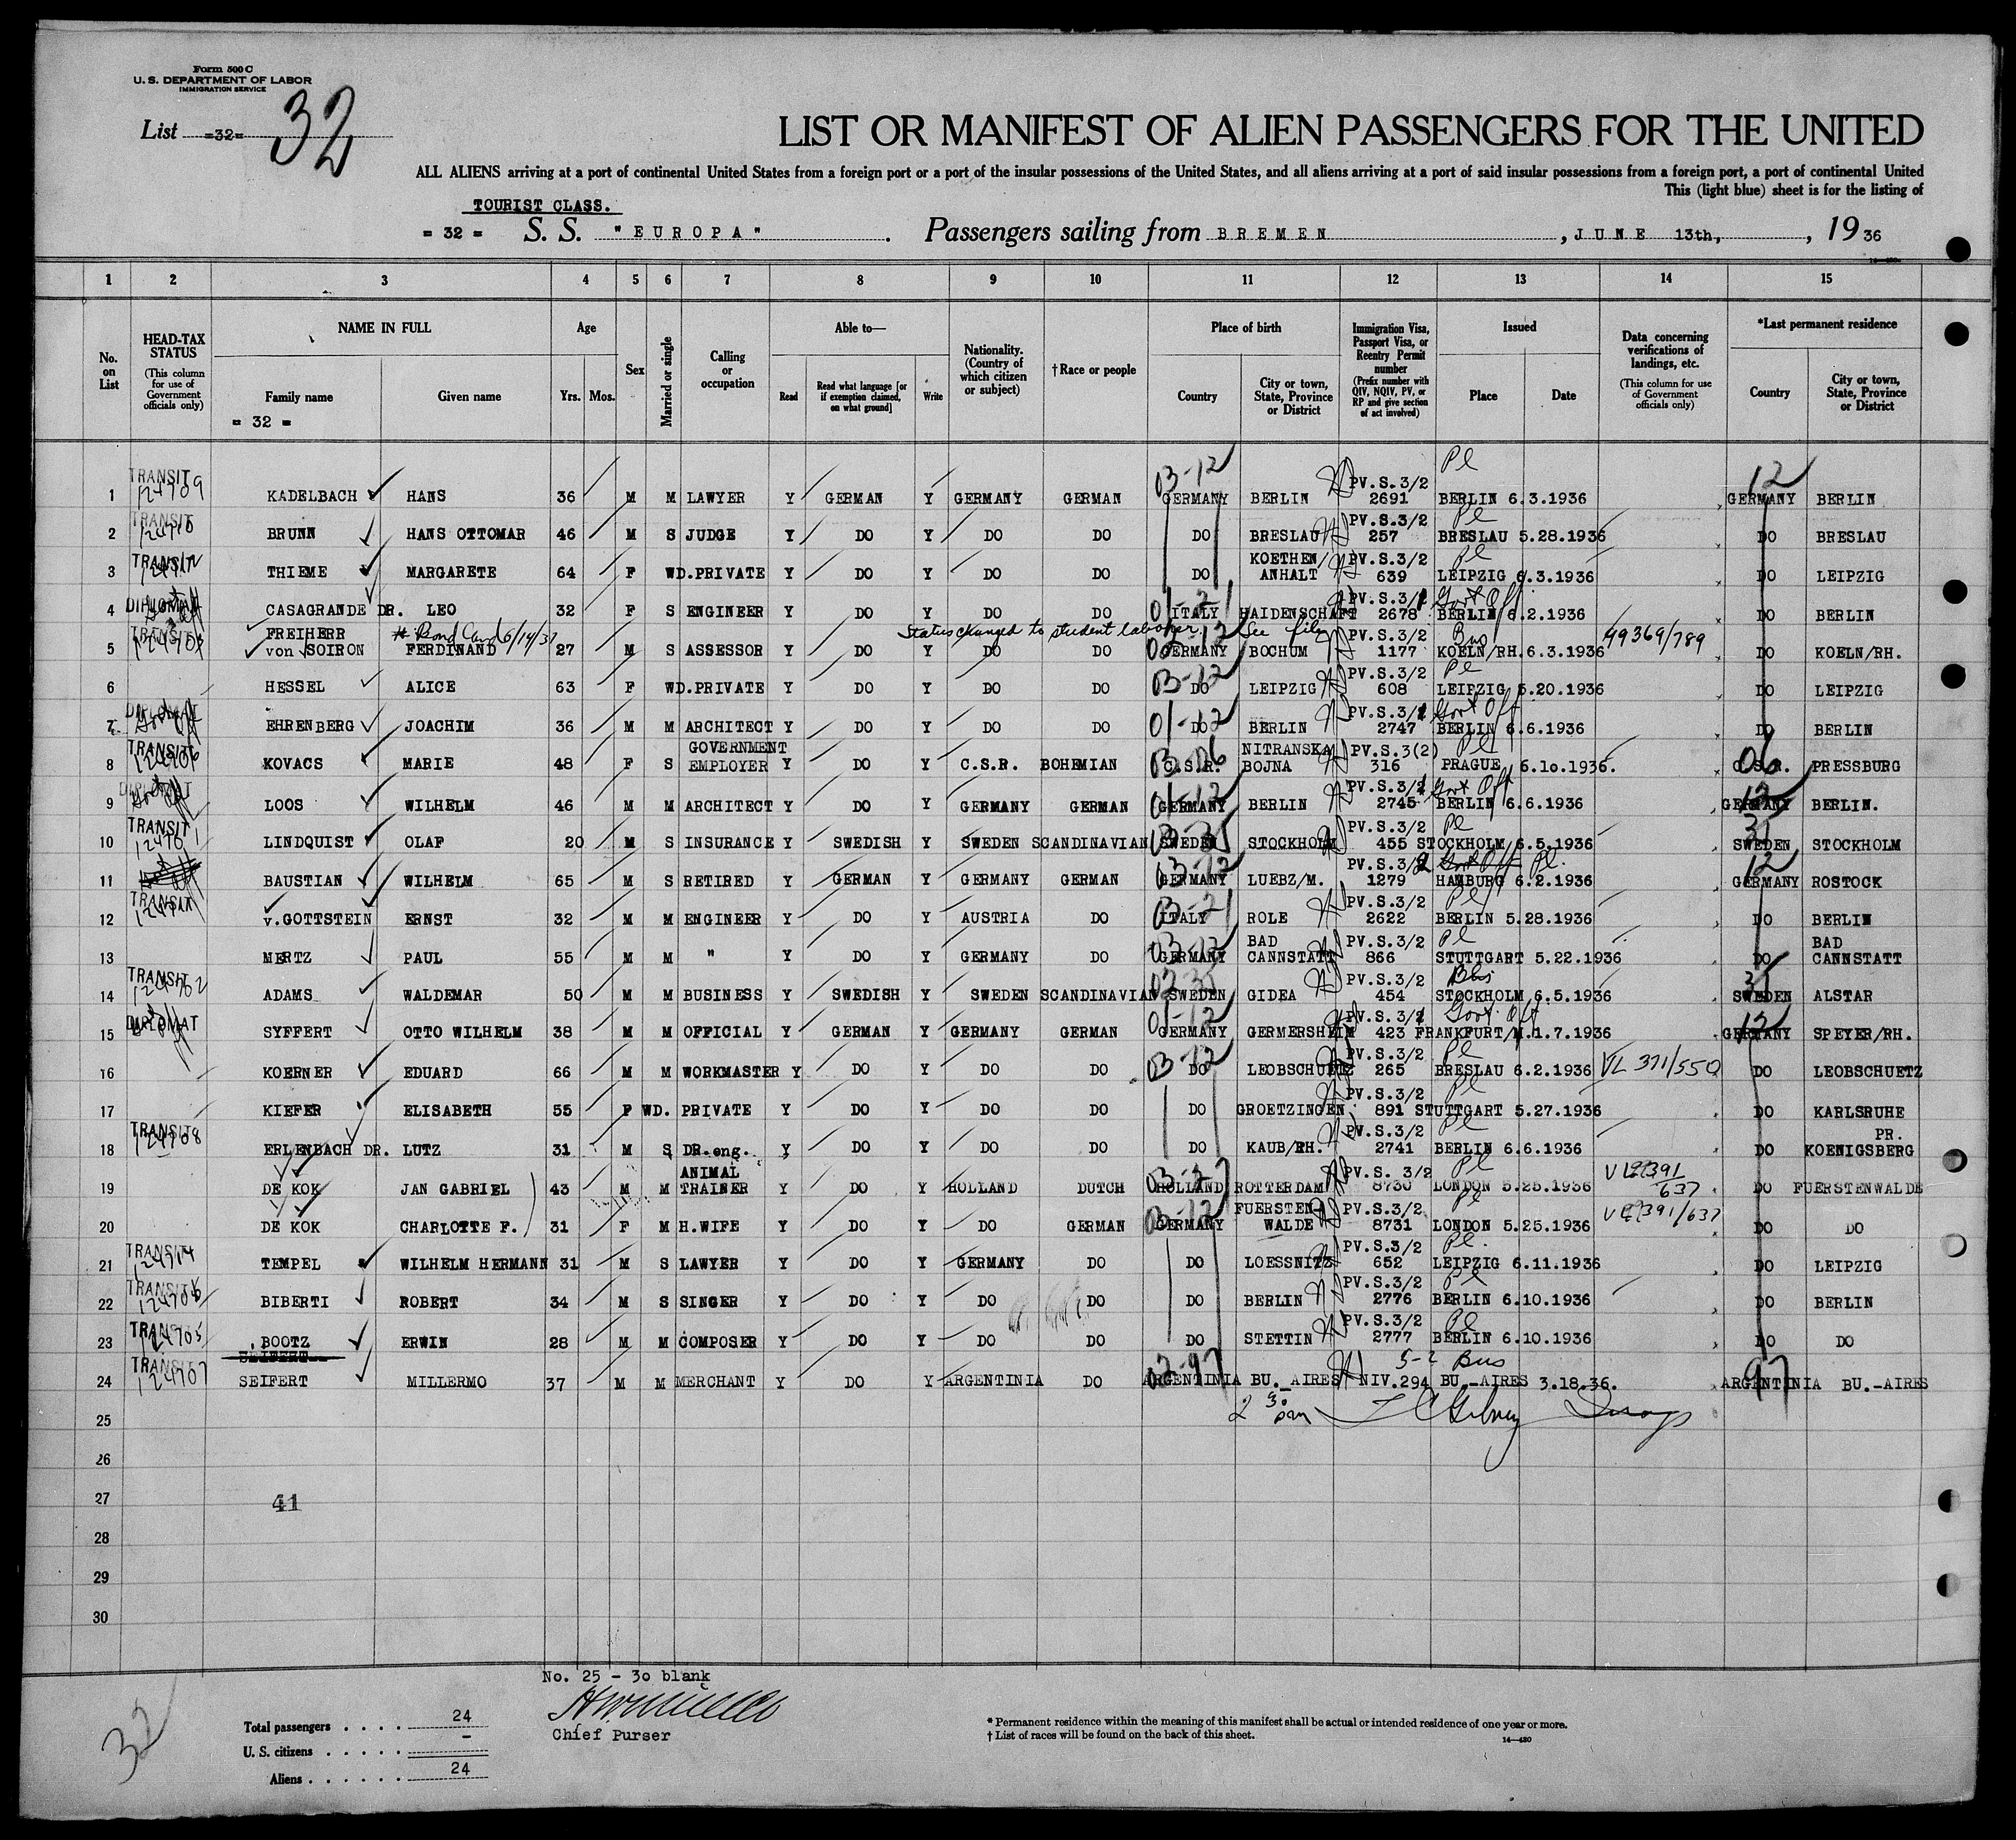 Form 500 C
U. S. DEPARTMENT OF LABOR
IMMIGRATION SERVICE
List =32= 32
LIST OR MANIFEST OF ALIEN PASSENGERS FOR THE UNITED
ALL ALIENS arriving at a port of continental United States from a foreign port or a port of the insular possessions of the United States, and all aliens arriving at a port of said insular possessions from a foreign port, a port of continental United
This (light blue) sheet is for the listing of
TOURIST CLASS.
= 32 = S. S. "EUROPA". Passengers sailing from BREMEN, JUNE 13th, 1936
1 2 3 4 5 6 7 8 9 10 11 12 13 14 15
No. on List
HEAD-TAX STATUS (This column for use of Government officials only)
NAME IN FULL Family name Given name
= 32 =
Age Yrs. Mos.
Sex
Married or single
Calling or occupation
Able to— Read Read what language [or if exemption claimed, on what ground] Write
Nationality. (Country of which citizen or subject)
†Race or people
Place of birth Country City or town, State, Province or District
Immigration Visa, Passport Visa, or Reentry Permit number (Prefix number with QIV, NQIV, PV, or RP and give section of act involved)
Issued Place Date
Data concerning verifications of landings, etc. (This column for use of Government officials only)
*Last permanent residence Country City or town, State, Province or District
1 TRANSIT 124709 KADELBACH HANS 36 M M LAWYER Y GERMAN Y GERMANY GERMAN 03-12 GERMANY BERLIN PV.S.3/2 2691 Pl BERLIN 6.3.1936 12 GERMANY BERLIN
2 TRANSIT 124710 BRUNN HANS OTTOMAR 46 M S JUDGE Y DO Y DO DO DO BRESLAU PV.S.3/2 257 Pl BRESLAU 5.28.1936 DO BRESLAU
3 TRANSIT THIEME MARGARETE 64 F WD. PRIVATE Y DO Y DO DO DO KOETHEN/ ANHALT PV.S.3/2 639 Pl LEIPZIG 6.3.1936 DO LEIPZIG
4 DIPLOMAT CASAGRANDE DR. LEO 32 F S ENGINEER Y DO Y DO DO 01-21 ITALY HAIDENSCHAFT PV.S.3/1 2678 Govt Off BERLIN 6.2.1936 DO BERLIN
Status changed to student laborer. See file
5 TRANSIT FREIHERR von SOIRON FERDINAND # Bond Cancl 6/14/37 27 M S ASSESSOR Y DO Y DO DO 02-12 GERMANY BOCHUM PV.S.3/2 1177 Bus KOELN/RH. 6.3.1936 99369/789 DO KOELN/RH.
6 HESSEL ALICE 63 F WD. PRIVATE Y DO Y DO DO 03-12 DO LEIPZIG PV.S.3/2 608 Pl LEIPZIG 5.20.1936 DO LEIPZIG
7 DIPLOMAT Govt Off EHRENBERG JOACHIM 36 M M ARCHITECT Y DO Y DO DO 01-12 DO BERLIN PV.S.3/1 2747 Govt Off BERLIN 6.6.1936 DO BERLIN
8 TRANSIT 124706 KOVACS MARIE 48 F S GOVERNMENT EMPLOYER Y DO Y C.S.R. BOHEMIAN 03-06 C.S.R. NITRANSKA BOJNA PV.S.3(2) 316 Pl PRAGUE 6.10.1936. 06 C.S.R. PRESSBURG
9 DIPLOMAT Govt Off LOOS WILHELM 46 M M ARCHITECT Y DO Y GERMANY GERMAN 01-12 GERMANY BERLIN PV.S.3/1 2745 Govt Off BERLIN 6.6.1936 12 GERMANY BERLIN.
10 TRANSIT 124701 LINDQUIST OLAF 20 M S INSURANCE Y SWEDISH Y SWEDEN SCANDINAVIAN 03-35 SWEDEN STOCKHOLM PV.S.3/2 455 Pl STOCKHOLM 6.5.1936 35 SWEDEN STOCKHOLM
11 BAUSTIAN WILHELM 65 M S RETIRED Y GERMAN Y GERMANY GERMAN 03-12 GERMANY LUEBZ/M. PV.S.3/2 1279 Govt Off Pl. HAMBURG 6.2.1936 12 GERMANY ROSTOCK
12 TRANSIT v.GOTTSTEIN ERNST 32 M M ENGINEER Y DO Y AUSTRIA DO 03-21 ITALY ROLE PV.S.3/2 2622 Pl BERLIN 5.28.1936 DO BERLIN
13 MERTZ PAUL 55 M M " Y DO Y GERMANY DO 03-12 GERMANY BAD CANNSTATT PV.S.3/2 866 Pl STUTTGART 5.22.1936 DO BAD CANNSTATT
14 TRANSIT 124702 ADAMS WALDEMAR 50 M M BUSINESS Y SWEDISH Y SWEDEN SCANDINAVIAN 02-35 SWEDEN GIDEA PV.S.3/2 454 Bus STOCKHOLM 6.5.1936 35 SWEDEN ALSTAR
15 DIPLOMAT SYFFERT OTTO WILHELM 38 M M OFFICIAL Y GERMAN Y GERMANY GERMAN 01-12 GERMANY GERMERSHEIM PV.S.3/1 423 Govt Off FRANKFURT/M. 1.7.1936 12 GERMANY SPEYER/RH.
16 KOERNER EDUARD 66 M M WORKMASTER Y DO Y DO DO 03-12 DO LEOBSCHUETZ PV.S.3/2 265 Pl BRESLAU 6.2.1936 VL 371/550 DO LEOBSCHUETZ
17 KIEFER ELISABETH 55 F WD. PRIVATE Y DO Y DO DO DO GROETZINGEN PV.S.3/2 891 Pl STUTTGART 5.27.1936 DO KARLSRUHE
18 TRANSIT 124708 ERLENBACH DR. LUTZ 31 M S DR.eng. Y DO Y DO DO DO KAUB/RH. PV.S.3/2 2741 Pl BERLIN 6.6.1936 DO PR. KOENIGSBERG
19 DE KOK JAN GABRIEL 43 M M ANIMAL TRAINER Y DO Y HOLLAND DUTCH 03-27 HOLLAND ROTTERDAM PV.S. 3/2 8730 Pl LONDON 5.25.1936 391/637 DO FUERSTENWALDE
20 DE KOK CHARLOTTE F. 31 F M H.WIFE Y DO Y DO GERMAN 03-12 GERMANY FUERSTEN WALDE PV.S.3/2 8731 Pl LONDON 5.25.1936 391/637 DO DO
21 TRANSIT 124704 TEMPEL WILHELM HERMANN 31 M S LAWYER Y DO Y GERMANY DO DO LOESSNITZ PV.S.3/2 652 Pl. LEIPZIG 6.11.1936 DO LEIPZIG
22 TRANSIT BIBERTI ROBERT 34 M S SINGER Y DO Y DO DO DO BERLIN PV.S.3/2 2776 Pl BERLIN 6.10.1936 DO BERLIN
23 TRANSIT 124705 BOOTZ ERWIN 28 M M COMPOSER Y DO Y DO DO DO STETTIN PV.S.3/2 2777 Pl BERLIN 6.10.1936 DO DO
SEIFERT
24 TRANSIT 124707 SEIFERT MILLERMO 37 M M MERCHANT Y DO Y ARGENTINIA DO 02-97 ARGENTINIA BU.-AIRES NIV.294 5-2 Bus BU.-AIRES 3.18.36. 97 ARGENTINIA BU.-AIRES
25 2 30 pm
26
27 41
28
29
30
No. 25 - 30 blank
Chief Purser
32
Total passengers . . . . 24
U. S. citizens . . . . . -
Aliens . . . . . . 24
* Permanent residence within the meaning of this manifest shall be actual or intended residence of one year or more.
† List of races will be found on the back of this sheet.
14—430